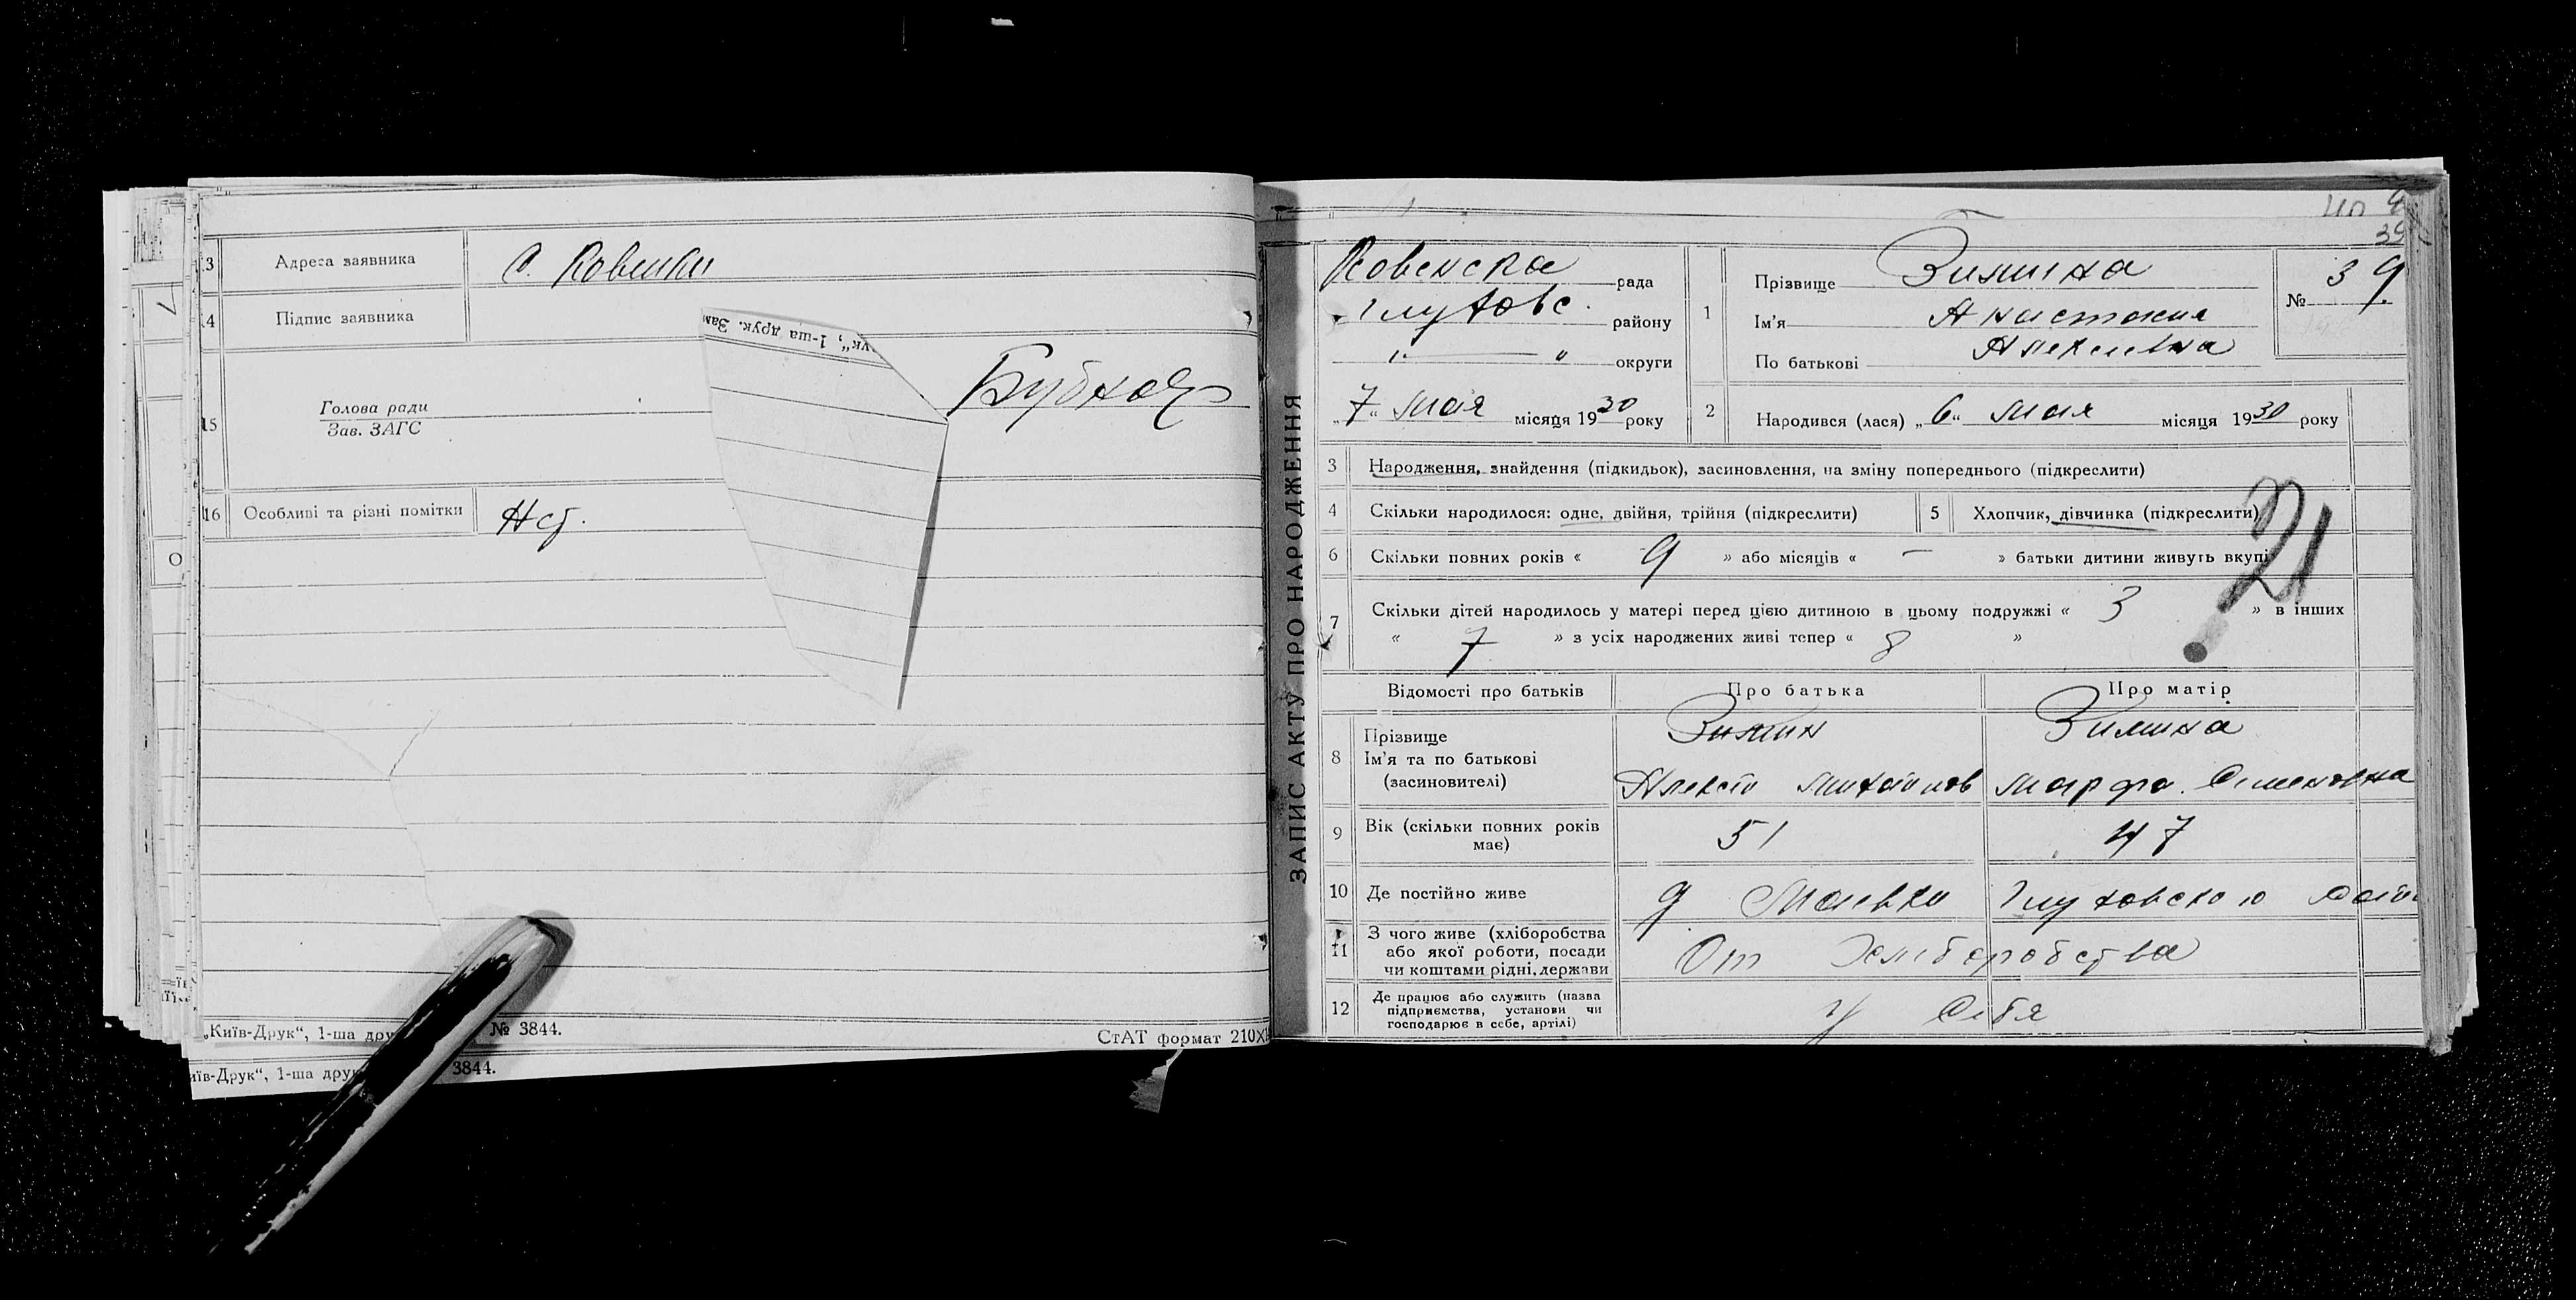 13 Адреса заявника с. Ровенки
14 Підпис заявника
15 Голова ради
Зав. ЗАГС
16 Особливі та різні помітки
ук“, 1-ша друк. Зам
„Київ-Друк“, 1-ша дру № 3844.
СтАТ формат 210Х
иїв-Друк“, 1-ша друк 3844.
ЗАПИС АКТУ ПРО НАРОДЖЕННЯ
39
Ровенска рада
Глуховс. району
„ — „ округи
„7“ мая місяця 1930 року
1 Прізвище Зимина
Ім'я Анастасия
По батькові Алексеевна
№ 39
2 Народився (лася) „6“ мая місяця 1930 року
3 Народження, знайдення (підкидьок), засиновлення, на зміну попереднього (підкреслити)
4 Скільки народилося: одне, двійня, трійня (підкреслити) 5 Хлопчик, дівчинка (підкреслити)
21
6 Скільки повних років « 9 » або місяців « — » батьки дитини живуть вкупі
7 Скільки дітей народилось у матері перед цією дитиною в цьому подружжі « 3 » в інших
« 7 » з усіх народжених живі тепер « 8 »
Відомості про батьків Про батька Про матір
8 Прізвище Зимин Зимина
Ім'я та по батькові
(засновителі) Алексей Михайлов Марфа Семеновна
9 Вік (скільки повних років має) 51 47
10 Де постійно живе д Маевки Глуховского
11 З чого живе (хліборобства
або якої роботи, посади
чи коштами рідні, держави От хліборобства
12 Де працює або служить (назва
підприємства, установи чи
господарює в себе, артілі) У себя